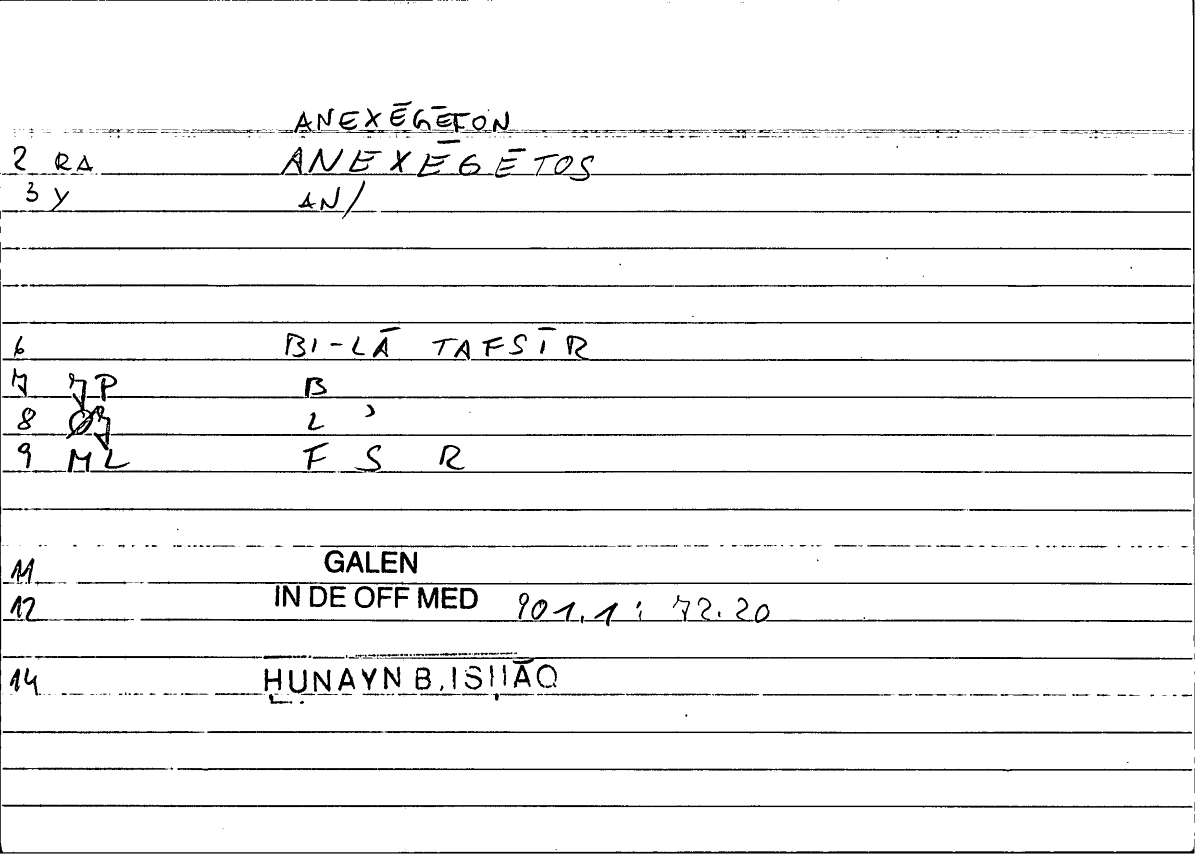 ANEXĒGĒTON
2 RA ANEXĒGĒTOS
3 Y AN/
6 BI-LĀ TAFSĪR
7 P B
8 L ʾ
9 ML F S R
11 GALEN
12 IN DE OFF MED 901.1 : 72.20
14 ḤUNAYN B. ISḤĀQ